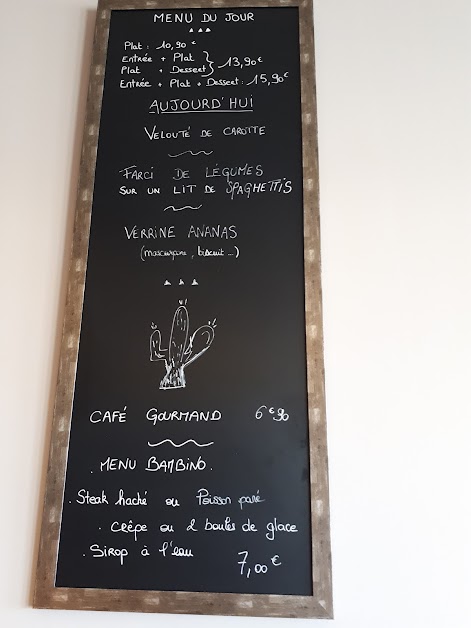 MENU DU JOUR
Plat : 10,90 €
Entrée + Plat
Plat + Dessert } 13,90€
Entrée + Plat + Dessert : 15,90€
AUJOURD'HUI
VELOUTÉ DE CAROTTE
FARCI DE LÉGUMES
SUR UN LIT DE SPAGHETTIS
VERRINE ANANAS
(mascarpone, biscuit ...)
CAFÉ GOURMAND 6€90
. MENU BAMBINO.
. Steak haché ou Poisson pané
. Crêpe ou 2 boules de glace
. Sirop à l'eau
7,00 €